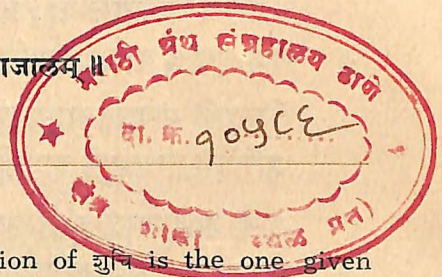 ाजालम् ॥
मराठी ग्रंथ संग्रहालय ठाणे
दा. क्र. १०५८६
शाखा स्थळ प्रत)
tion of शुचि is the one given